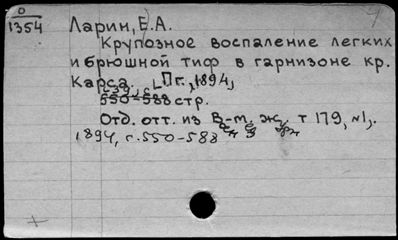 О
1354
Ларин, Е.А.
Крупозное воспаление легких
и брюшной тиф в гарнизоне кр.
Карса. [Пг., 1894,
550-588 стр.
Отд. отт. из В-м. ж., т 179, №1,
1894, с. 550-588